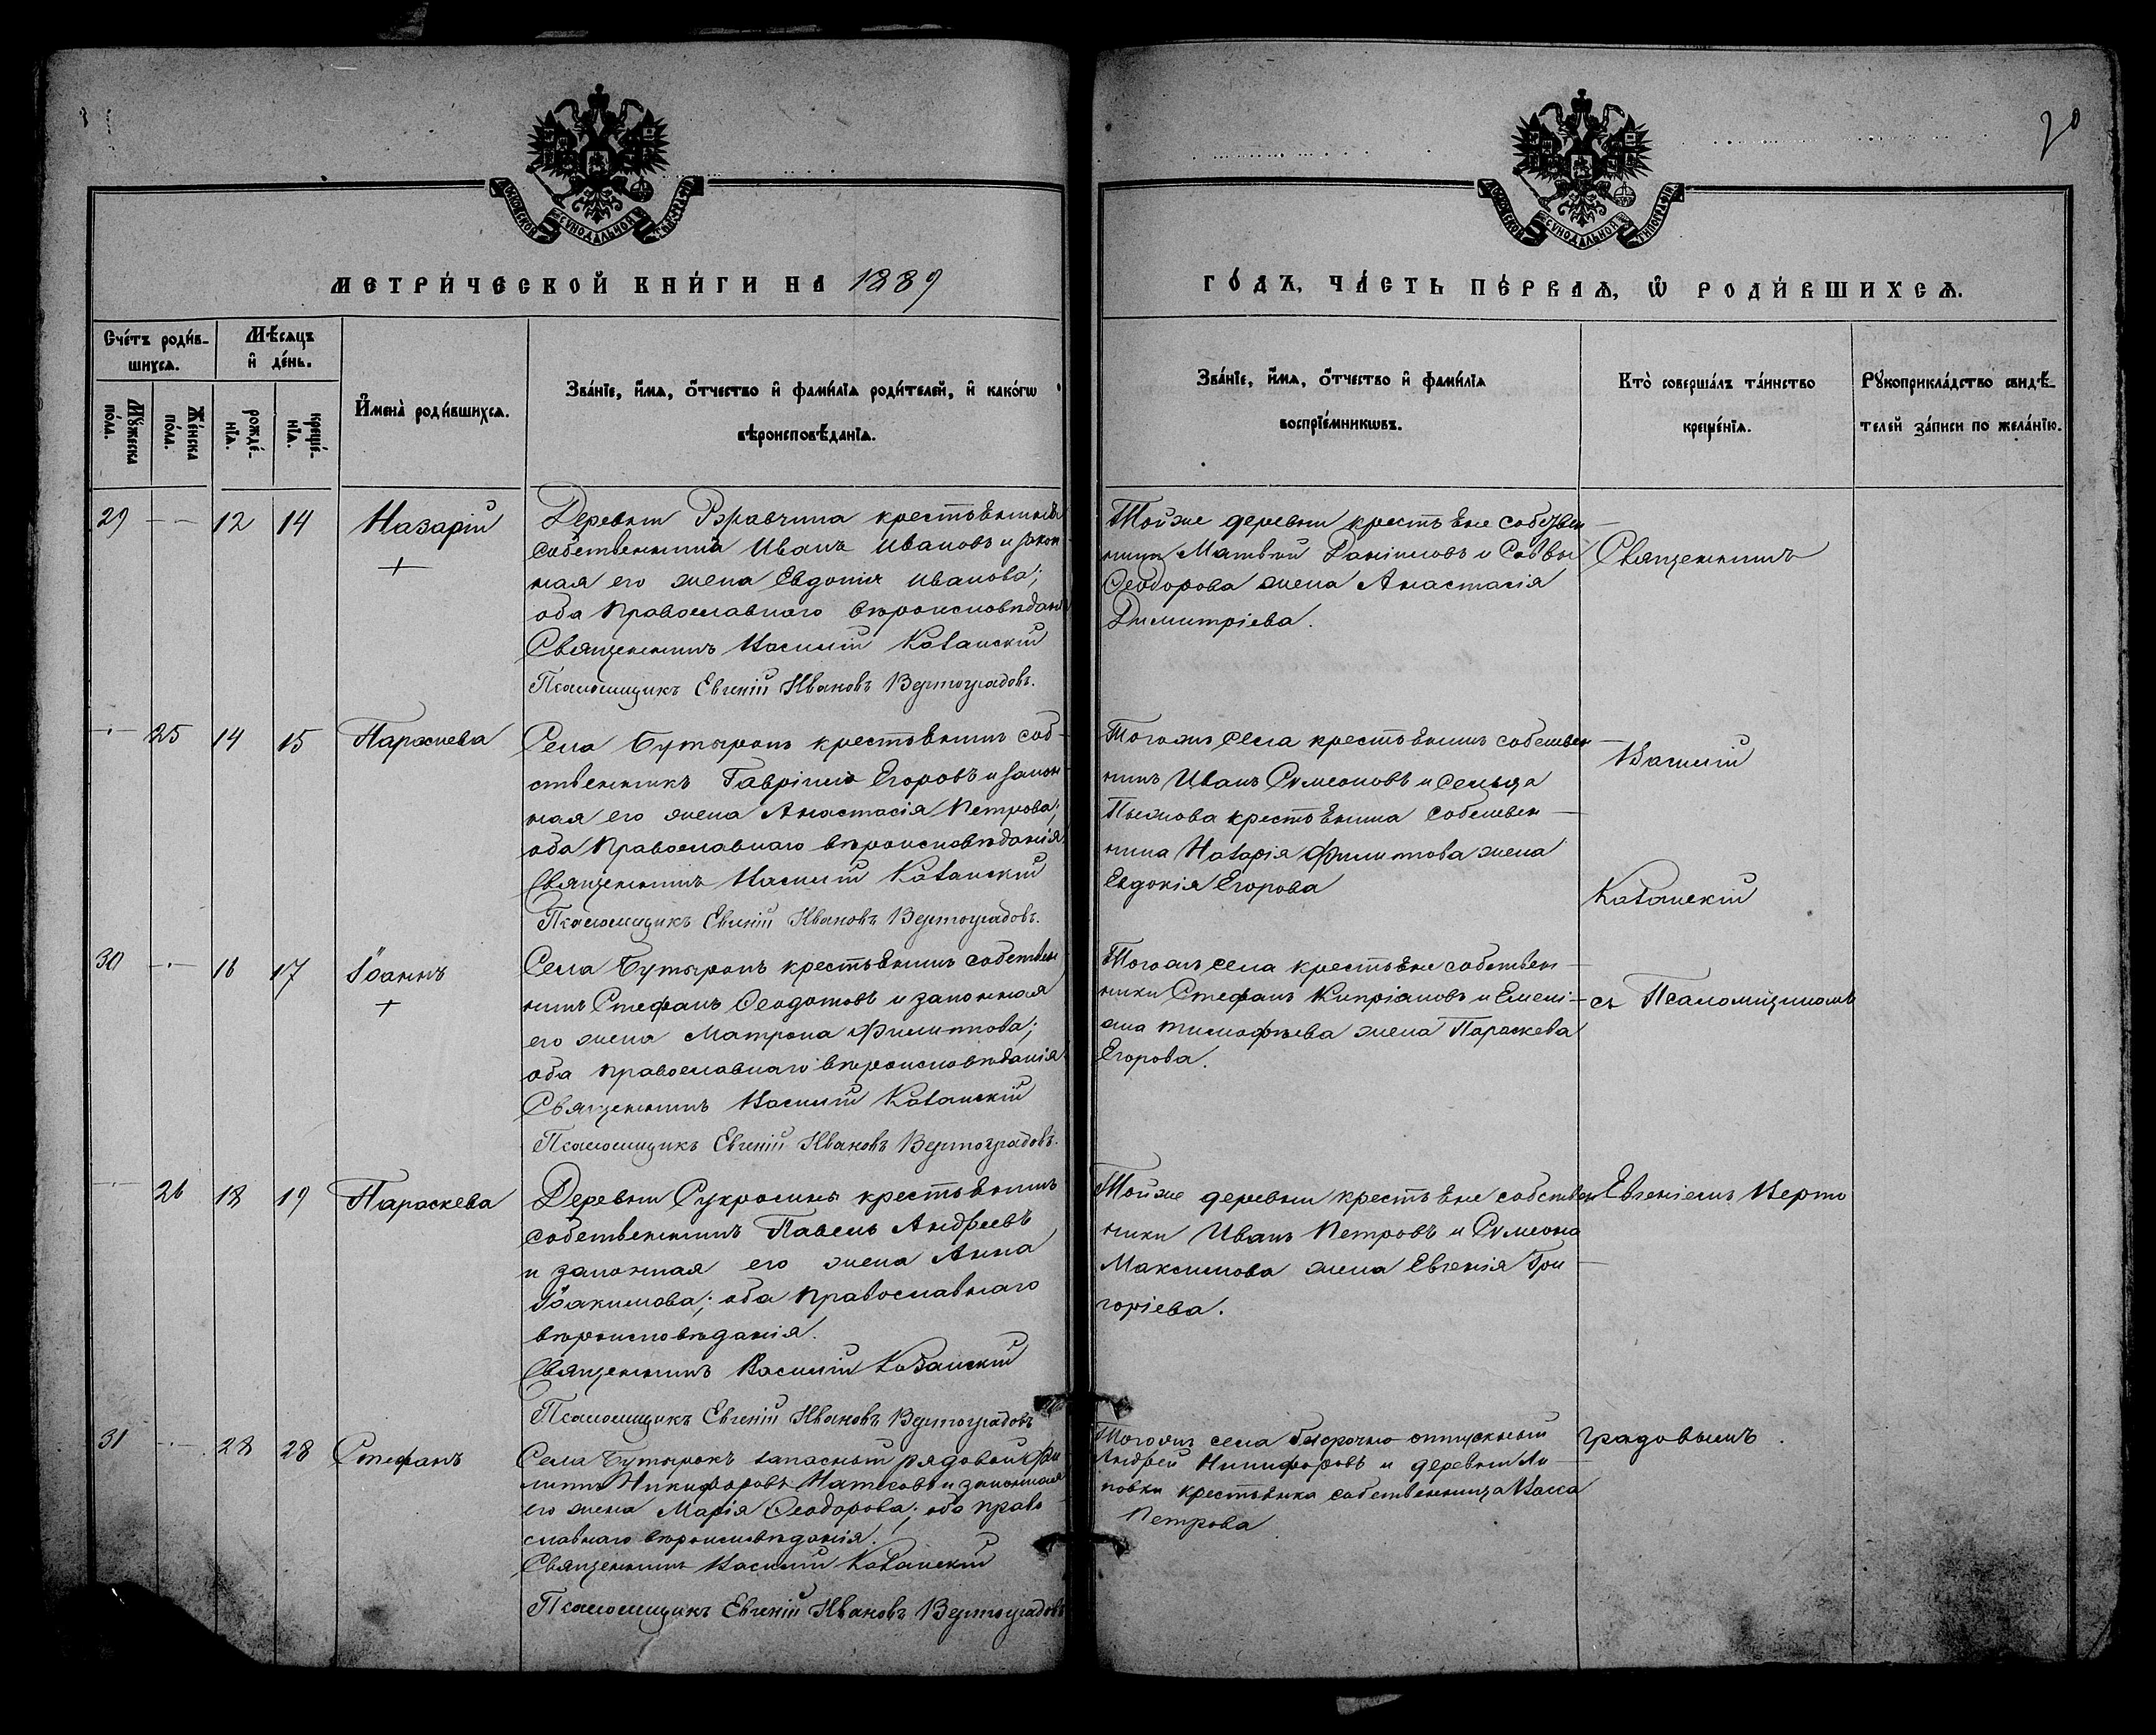 20
МОСКОВСКОЙ СѴНОДАЛЬНОЙ ТИПОГРАФІИ
МОСКОВСКОЙ СѴНОДАЛЬНОЙ ТИПОГРАФІИ
МЕТРИ́ЧЕСКОЙ КНИ́ГИ НА 1889
ГО́ДЪ, ЧА́СТЬ ПЕ́РВАѦ, Ѡ РОДИ́ВШИХСѦ.
Сче́тъ роди́в-
шихсѧ.
Мꙋ́жеска
по́ла.
Же́нска
по́ла.
Мѣ́сѧцъ
и҆ де́нь.
рожде́-
нїѧ.
креще́-
нїѧ.
И҆мена̀ роди́вшихсѧ.
Зва́нїе, и҆́мѧ, ѻ҆́тчество и҆ фами́лїѧ роди́телей, и҆ како́гѡ
вѣроисповѣ́данїѧ.
Зва́нїе, и҆́мѧ, ѻ҆́тчество и҆ фами́лїѧ
воспрїе́мникѡвъ.
Кто̀ соверша́лъ та́инство
креще́нїѧ.
Рꙋкоприкла́дство свидѣ́-
телей за́писи по жела́нїю.
29 12 14 Назарій
+
Деревни Ржавчика крестьянинъ
собственникъ Иванъ Ивановъ и закон-
ная его жена Евдокія Иванова;
оба Православнаго вѣроисповѣданія
Священникъ Василій Казанскій
Псаломщикъ Евгеній Ивановъ Вертоградовъ.
Тойже деревни крестьяне собствен-
ники Матвѣй Даніиловъ и Саввы
Ѳеодорова жена Анастасія
Димитріева.
Священникъ
25 14 15 Параскева
Села Бутырокъ крестьянинъ соб-
ственникъ Гавріилъ Егоровъ и закон-
ная его жена Анастасія Петрова;
оба Православнаго вѣроисповѣданія
Священникъ Василій Казанскій
Псаломщикъ Евгеній Ивановъ Вертоградовъ.
Тогожъ села крестьянинъ собствен-
никъ Иванъ Сѵмеоновъ и сельца
крестьянина собствен-
ника Назарія Филиппова жена
Евдокія Егорова
Василій
Казанскій
30 16 17 Іоаннъ
+
Села Бутырокъ крестьянинъ собствен-
никъ Стефанъ Ѳеодотовъ и законная
его жена Матрона Филиппова;
оба православнаго вѣроисповѣданія
Священникъ Василій Казанскій
Псаломщикъ Евгеній Ивановъ Вертоградовъ.
Тогожъ села крестьяне собствен-
ники Стефанъ Кипріановъ и Емелі-
ана Тимофѣева жена Параскева
Егорова.
съ Псаломщикомъ
26 18 19 Параскева
Деревни Сукросинъ крестьянинъ
собственникъ Павелъ Андреевъ
и законная его жена Анна
Іоакимова; оба православнаго
вѣроисповѣданія.
Священникъ Василій Казанскій
Псаломщикъ Евгеній Ивановъ Вертоградовъ
Тойже деревни крестьяне собствен-
ники Иванъ Петровъ и Сѵмеона
Максимова жена Евгенія Гри-
горіева.
Евгеніемъ Верто
31 28 28 Стефанъ
Села Бутырокъ запасный рядовой Фи-
липпъ Никифоровъ и законная
его жена Марія Ѳеодорова; оба право-
славнаго вѣроисповѣданія.
Священникъ Василій Казанскій
Псаломщикъ Евгеній Ивановъ Вертоградовъ
Тогожъ села безсрочно отпускный
Андрей Никифоровъ и деревни Ли-
повки крестьянка собственница Васса
Петрова
градовымъ.